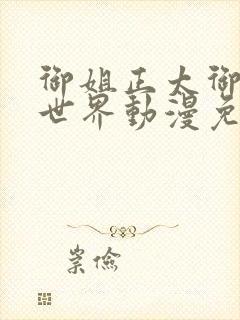 御姐正太御
世界動漫免
崇儉